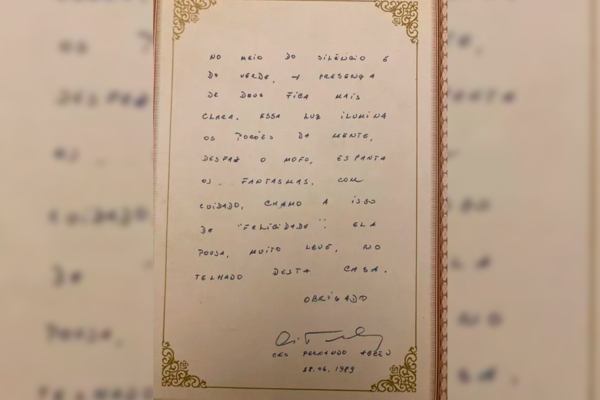 NO MEIO DO SILÊNCIO E
DO VERDE, A PRESENÇA
DE DEUS FICA MAIS
CLARA. ESSA LUZ ILUMINA
OS PORÕES DA MENTE,
DESFAZ O MOFO, ESPANTA
OS FANTASMAS. COM
CUIDADO, CHAMO A ISSO
DE "FELICIDADE". ELA
POUSA, MUITO LEVE, NO
TELHADO DESTA CASA.
OBRIGADO
CAIO FERNANDO ABREU